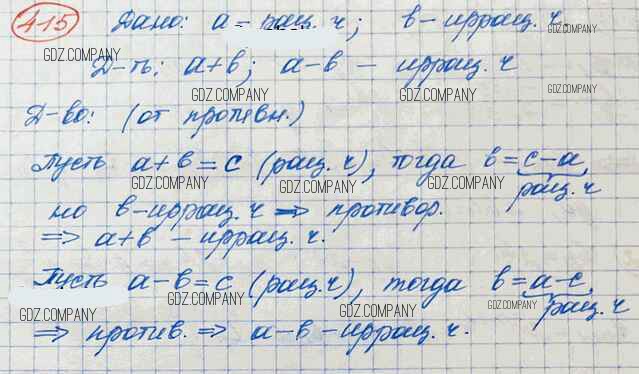 415 Дано: а - рац. ч; в - иррац. ч.
GDZ.COMPANY
GDZ.COMPANY
Д-ть: а+в; а-в - иррац. ч
GDZ.COMPANY GDZ.COMPANY
Д-во: (от противн.)
GDZ.COMPANY
Пусть а+в=с (рац. ч), тогда в=с-а,
рац. ч
GDZ.COMPANY GDZ.COMPANY GDZ.COMPANY
но в-иррац. ч => противор.
=> а+в - иррац. ч.
Пусть а-в=с (рац. ч), тогда в=а-с,
рац. ч
GDZ.COMPANY GDZ.COMPANY GDZ.COMPANY GDZ.COMPANY
=> против. => а-в - иррац. ч.